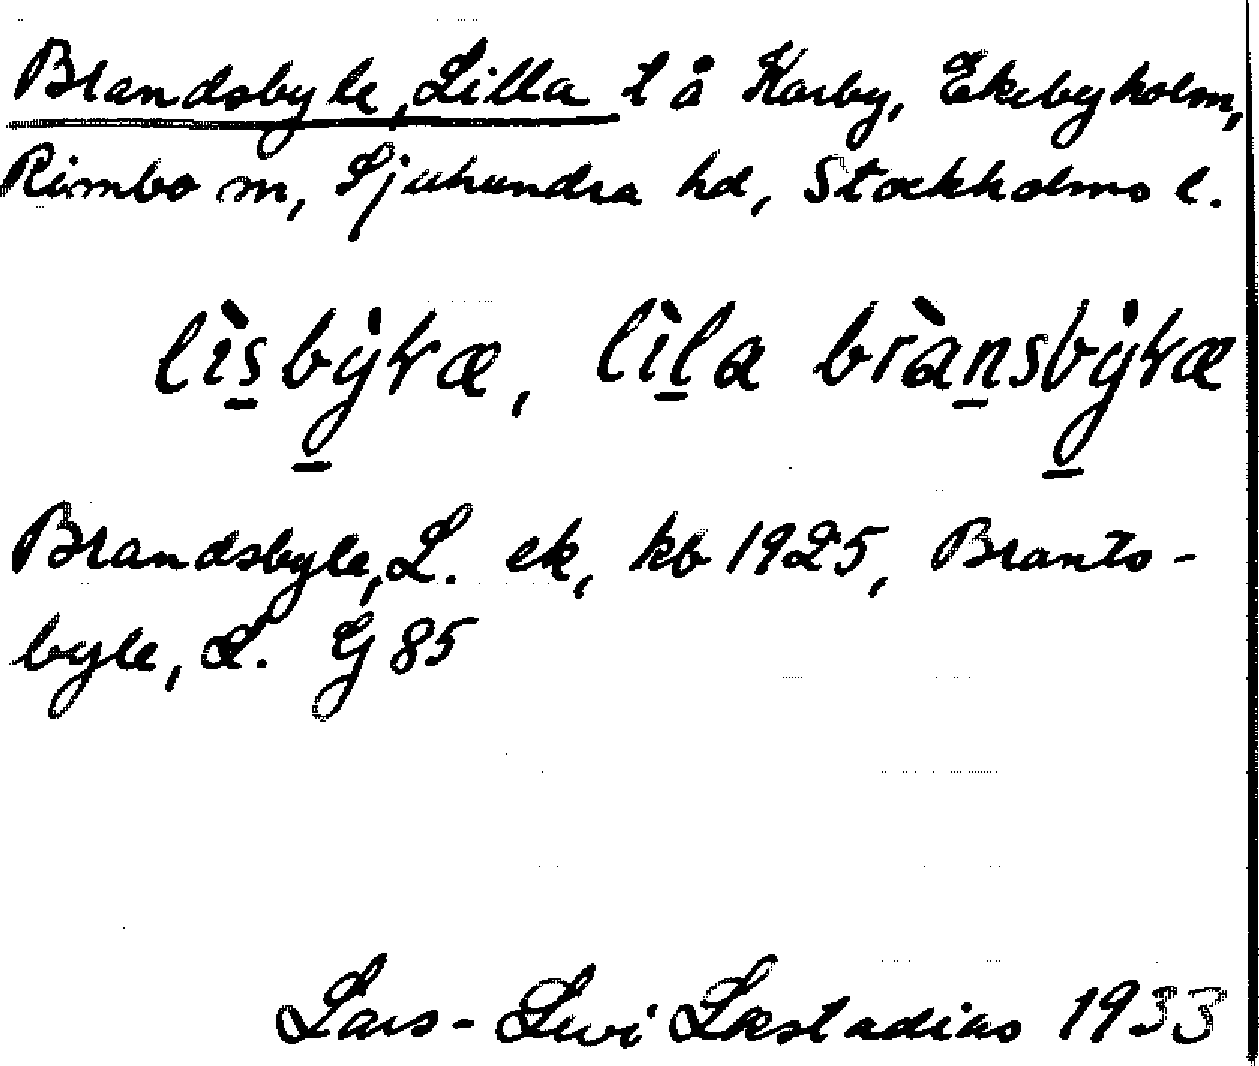 Brandsbyle, Lilla t å Karby, Ekebyholm,
Rimbo sn, Sjuhundra hd, Stockholms l.
lìsbẏ̀ɽæ, lìla brànsbẏɽæ
Brandsbyle, L. ek, kb 1925, Brants-
byle, L. G 85
Lars-Levi Læstadius 1933